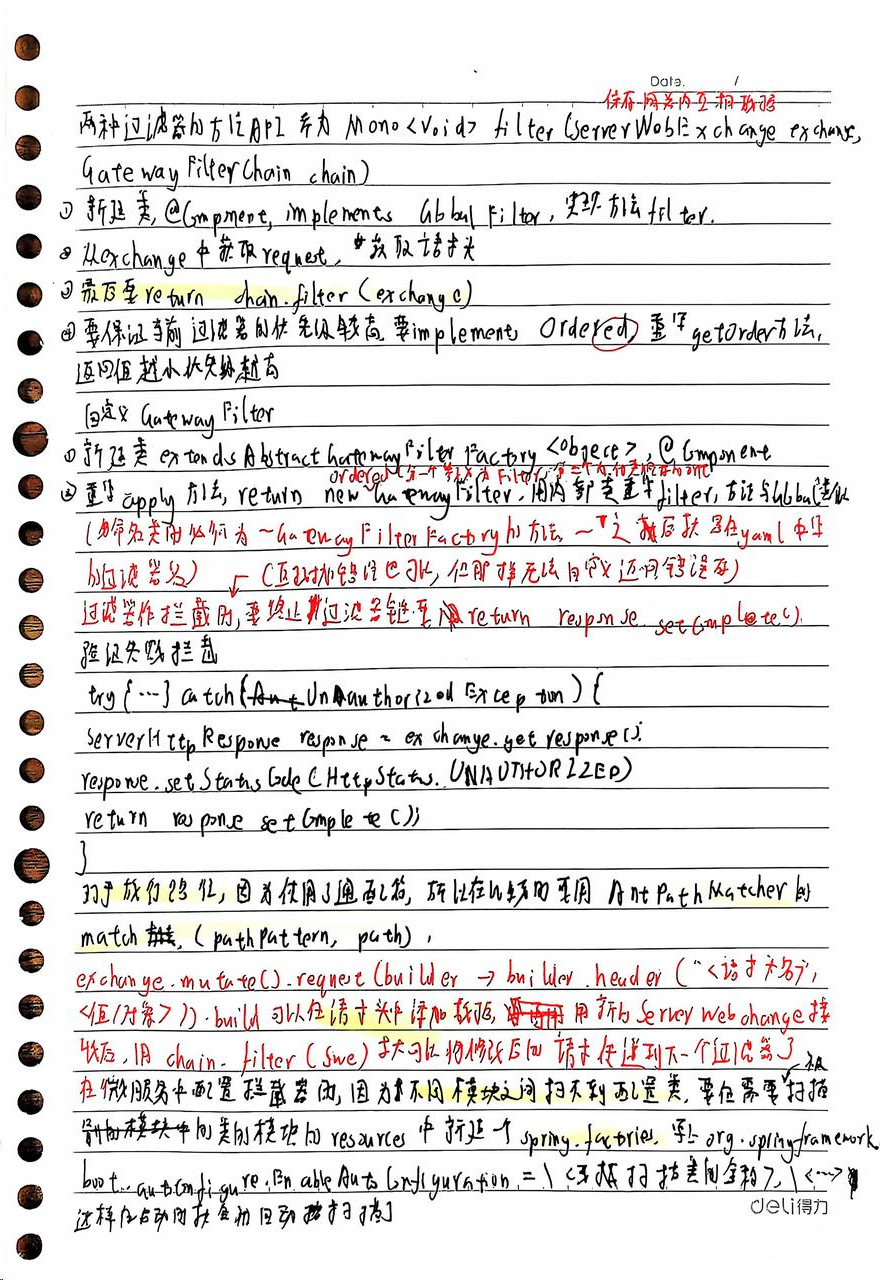 Date. /
保存网关内互相数据
两种过滤器的方法API 都为 Mono<Void> filter(ServerWebExchange exchange,
GatewayFilterChain chain)
① 新建类, @Component, implements Global Filter, 实现方法filter.
② 从exchange中获取request, 获取请求头
③ 最后要return chain.filter(exchange)
④ 要保证当前过滤器的优先级较高, 要implement Ordered, 重写getOrder方法,
返回值越小优先级越高
自定义 GatewayFilter
① 新建类 extends AbstractGatewayFilterFactory <Object>, @Component
ordered(第一个参数为Filter, 第二个为
② 重写 apply 方法, return new GatewayFilter. 用内部类重写filter, 方法与Global类似
(命名类的必须为~GatewayFilterFactory的方法, ~之后就是在yaml中写
的过滤器名)
(直接抛错误也可以, 但那样无法自定义返回错误码)
过滤器作拦截时, 要终止过滤器链要return response.setComplete().
验证失败拦截
try{...} catch(UnAuthorizedException){
ServerHttpResponse response = exchange.getresponse();
response.setStatusCode(HttpStatus.UNAUTHORIZED)
return response setComplete();
}
对于放行路径, 因为使用了通配符, 所以在比较时要用 AntPathMatcher 的
match (pathPattern, path),
exchange.mutate().request(builder → builder.header("<请求头名>",
<值/对象>)).build 可以在请求头中添加数据, 用新的ServerWebchange接
收后, 用 chain.filter(swe) 就可以将修改后的请求传递到下一个过滤器了
在微服务中配置拦截器时, 因为不同模块之间扫不到配置类, 要在需要被扫描
的类的模块的resources中新建一个spring.factories, 写上org.springframework.
boot.autoconfigure.EnableAutoConfiguration = \ <要被扫描类的全称>, \ <...>
这样在启动时就会自动扫描了
deli得力